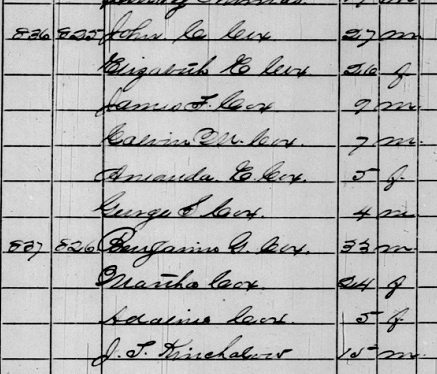 836 825 John C Cox 27 m
Elizabeth E Cox 26 f
James F. Cox 9 m
Calvin M. Cox 7 m
Amanda E. Cox 5 f
George S Cox. 4 m
837 826 Benjamin G. Cox. 33 m
Martha Cox 24 f
Cox 5 f
J. T. Kinchelow 15 m